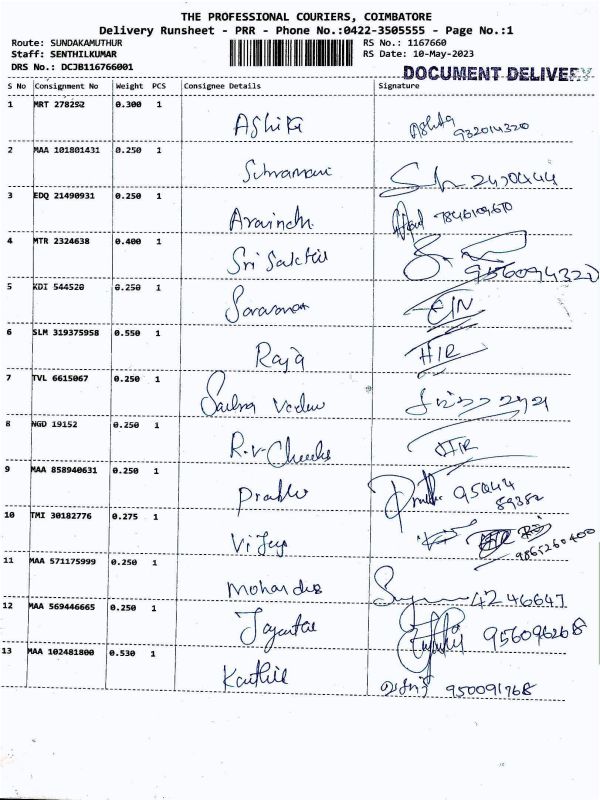 THE PROFESSIONAL COURIERS, COIMBATORE
Delivery Runsheet - PRR - Phone No.:0422-3505555 - Page No.:1
Route: SUNDAKAMUTHUR RS No.: 1167660
Staff: SENTHILKUMAR RS Date: 10-May-2023
DRS No.: DCJB116766001
DOCUMENT DELIVERY
S No Consignment No Weight PCS Consignee Details Signature
1 MRT 278292 0.300 1
Ashika Ashika
932014320
2 MAA 101801431 0.250 1
2470444
3 EDQ 21490931 0.250 1
Aravindh
4 MTR 2324638 0.400 1
Sri Sakthi
9560974320
5 KDI 544520 0.250 1
Saravanan
6 SLM 319375958 0.550 1
Raja H/R
7 TVL 6615067 0.250 1
8 NGD 19152 0.250 1
H/R
9 MAA 858940631 0.250 1
Prabhu 95044
89382
10 TMI 30182776 0.275 1
Vijay
9865260400
11 MAA 571175999 0.250 1
Mohandas 4246647
12 MAA 569446665 0.250 1
956096268
13 MAA 102481800 0.530 1
Karthik
950091768